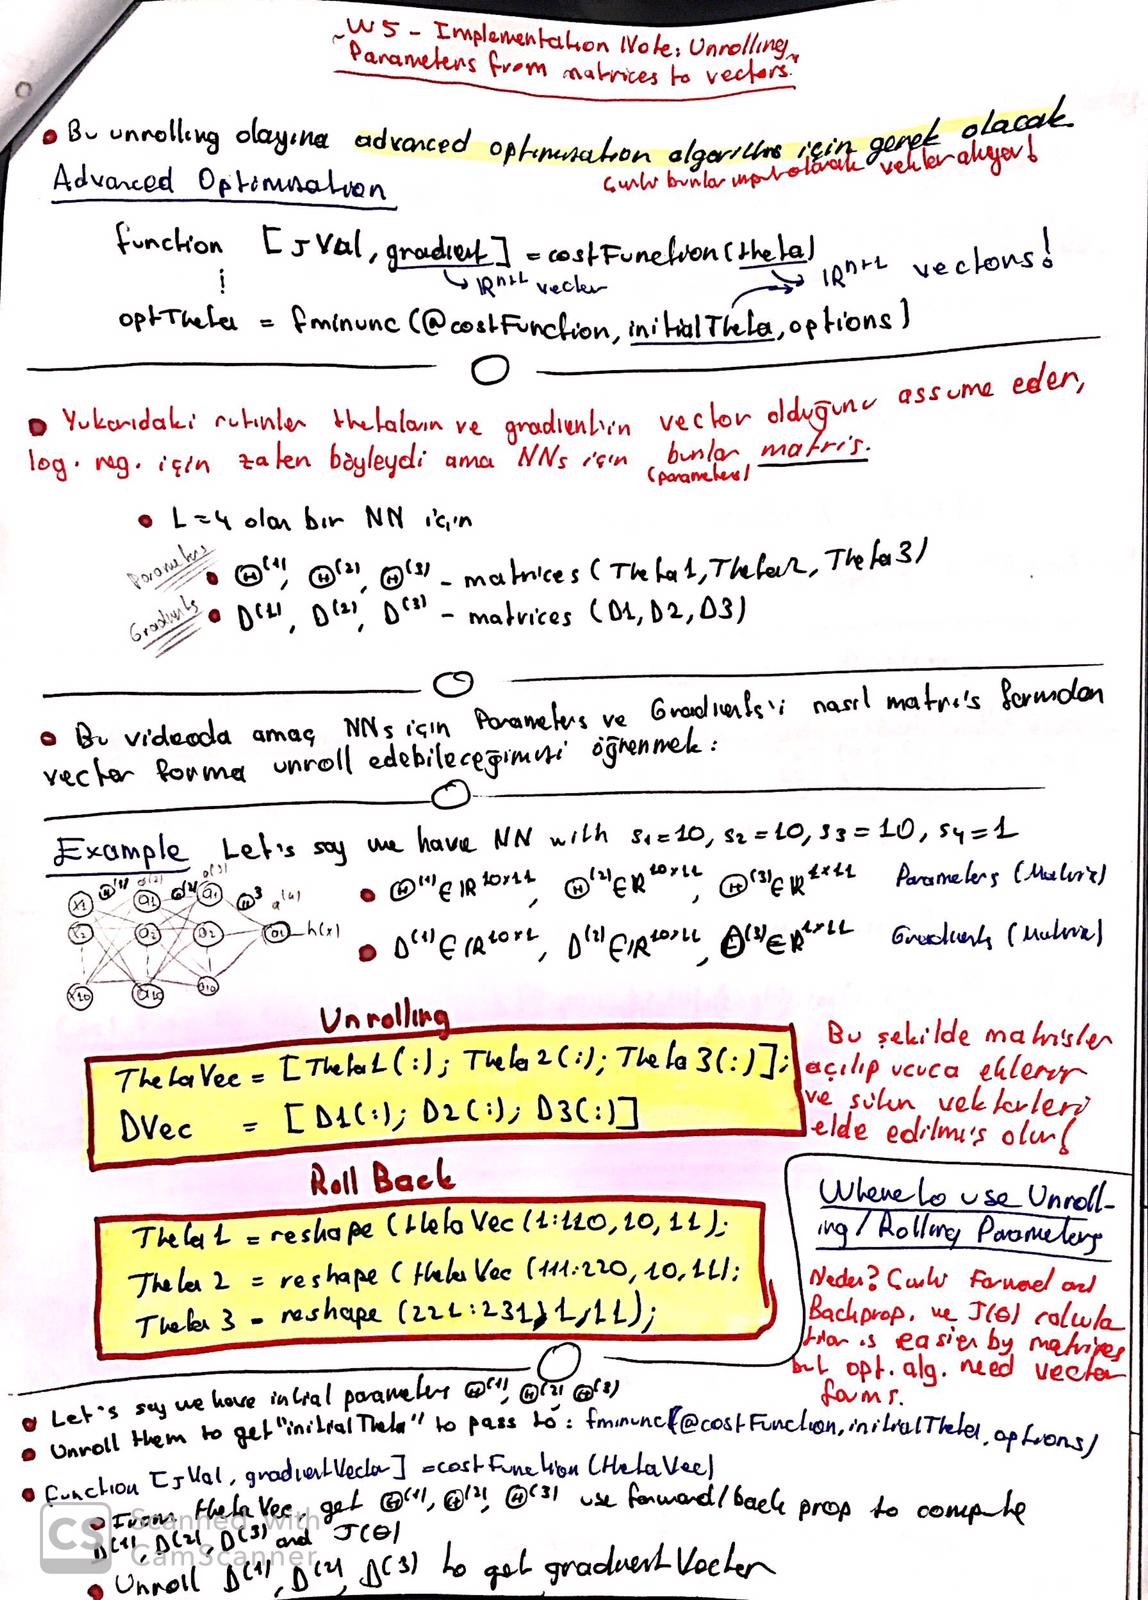 W5 - Implementation Note: Unrolling
Parameters from matrices to vectors.
Bu unrolling olayına advanced optimisation algorithms için gerek olacak
çünkü bunlar input olarak vektor alıyor!
Advanced Optimisation
function [JVal, gradient] = costFunction(theta)
ℝⁿ⁺¹ vector
ℝⁿ⁺¹ vectors!
optTheta = fminunc(@costFunction, initialTheta, options)
Yukarıdaki rutinler thetaların ve gradientin vector olduğunu assume eder,
log. reg. için zaten böyleydi ama NNs için bunlar matris.
(parameters)
L=4 olan bir NN için
Parameters
Θ⁽¹⁾, Θ⁽²⁾, Θ⁽³⁾ - matrices (Theta1, Theta2, Theta3)
Gradients
D⁽¹⁾, D⁽²⁾, D⁽³⁾ - matrices (D1, D2, D3)
Bu videoda amaç NNs için Parameters ve Gradients'i nasıl matris formdan
vector forma unroll edebileceğimizi öğrenmek:
Example Let's say we have NN with s₁=10, s₂=10, s₃=10, s₄=1
Θ⁽¹⁾ a⁽²⁾ Θ⁽²⁾ a⁽³⁾ Θ³ a⁽⁴⁾
x1 a1 a1
x2 a2 a2 a1 h(x)
x10 a10 a10
Θ⁽¹⁾∈ℝ¹⁰ˣ¹¹, Θ⁽²⁾∈ℝ¹⁰ˣ¹¹, Θ⁽³⁾∈ℝ¹ˣ¹¹ Parameters (Matrix)
D⁽¹⁾∈ℝ¹⁰ˣ¹¹, D⁽²⁾∈ℝ¹⁰ˣ¹¹, D⁽³⁾∈ℝ¹ˣ¹¹ Gradients (Matrix)
Unrolling
ThetaVec = [Theta1(:); Theta2(:); Theta3(:)];
DVec = [D1(:); D2(:); D3(:)]
Bu şekilde matrisler
açılıp ucuca eklenir
ve sütun vektorleri
elde edilmiş olur!
Roll Back
Theta1 = reshape(thetaVec(1:110, 10, 11);
Theta 2 = reshape(thetaVec(111:220, 10, 11);
Theta 3 = reshape(221:231, 1, 11);
Where to use Unroll-
ing/Rolling Parameters
Neden? Çünkü Forward and
Backprop. ve J(Θ) calcula
tion is easier by matrices
but opt. alg. need vector
forms.
Let's say we have intial parameters Θ⁽¹⁾, Θ⁽²⁾ Θ⁽³⁾
Unroll them to get "initialTheta" to pass to: fminunc(@costFunction, initialTheta, options)
function [JVal, gradientVector] = costFunction(thetaVec)
From thetaVec, get Θ⁽¹⁾, Θ⁽²⁾, Θ⁽³⁾ use forward/back prop to compute
D⁽¹⁾, D⁽²⁾, D⁽³⁾ and J(Θ)
Unroll D⁽¹⁾, D⁽²⁾, D⁽³⁾ to get gradientVector
CS Scanned with
CamScanner